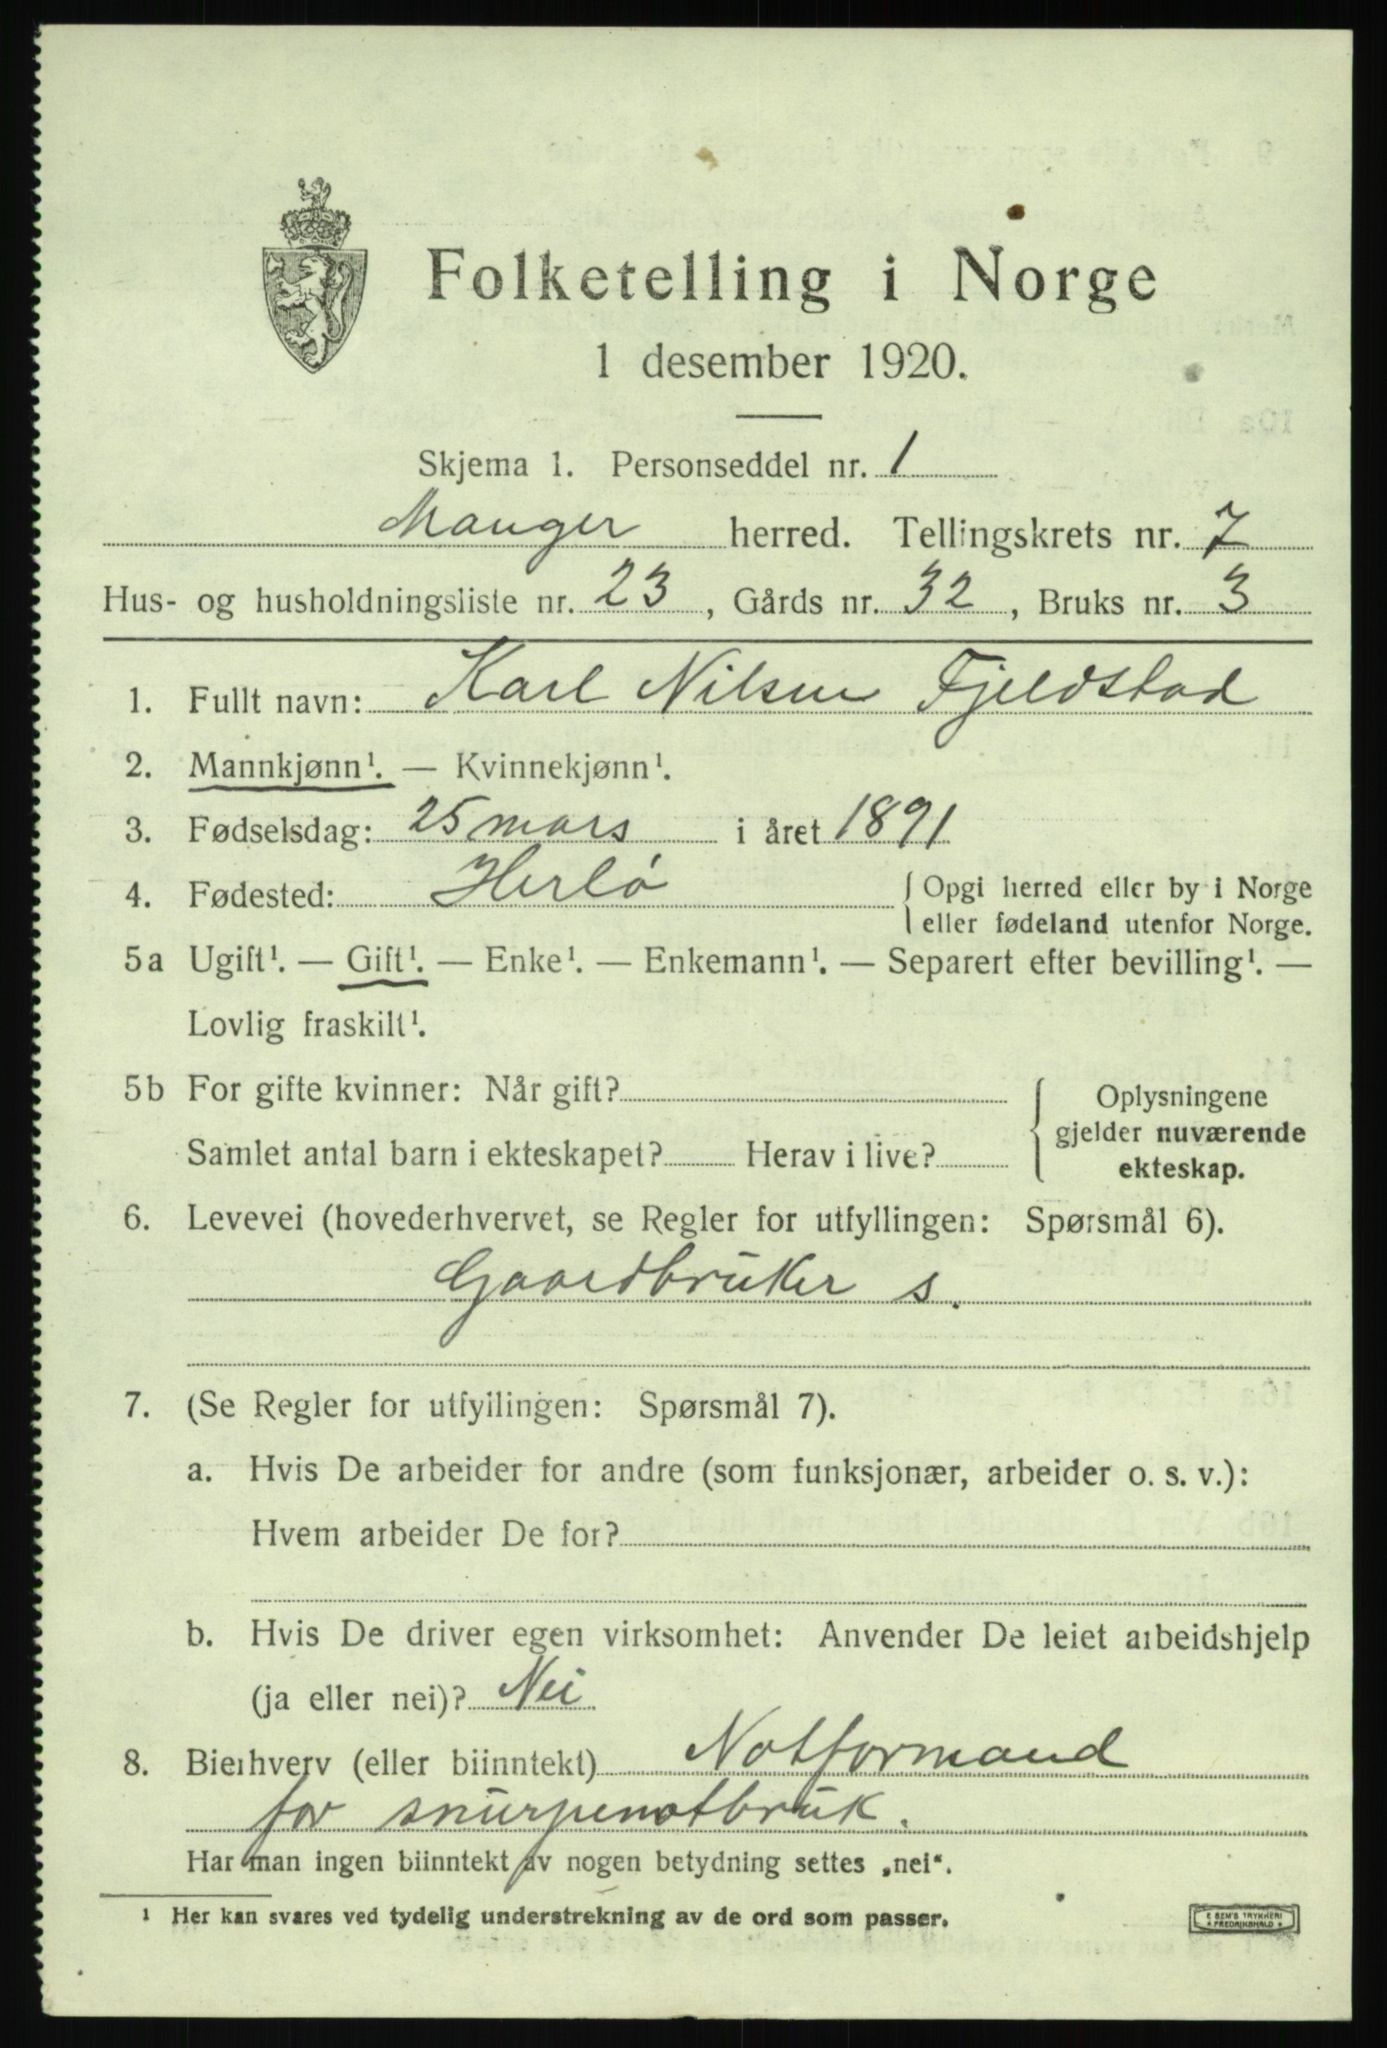 Folketelling i Norge
1 desember 1920.
Skjema 1. Personseddel nr. 1
Manger herred. Tellingskrets nr. 7
Hus- og husholdningsliste nr. 23, Gårds nr. 32, Bruks nr. 3
1. Fullt navn: Karl Nilsen Fjeldstad
2. Mannkjønn¹. — Kvinnekjønn¹.
3. Fødselsdag: 25 mars i året 1891
4. Fødested: Herlø { Opgi herred eller by i Norge
eller fødeland utenfor Norge.
5a Ugift¹. — Gift¹. — Enke¹. — Enkemann¹. — Separert efter bevilling¹. —
Lovlig fraskilt¹.
5b For gifte kvinner: Når gift?
Samlet antal barn i ekteskapet? Herav i live?
Oplysningene
gjelder nuværende
ekteskap.
6. Levevei (hovederhvervet, se Regler for utfyllingen: Spørsmål 6).
Gaardbruker s.
7. (Se Regler for utfyllingen: Spørsmål 7).
a. Hvis De arbeider for andre (som funksjonær, arbeider o. s. v.):
Hvem arbeider De for?
b. Hvis De driver egen virksomhet: Anvender De leiet arbeidshjelp
(ja eller nei)? Nei
8. Bierhverv (eller biinntekt) Notformand
for snurpenotbruk.
Har man ingen biinntekt av nogen betydning settes „nei“.
¹ Her kan svares ved tydelig understrekning av de ord som passer.
E SEM'S TRYKKERI
FREDRIKSHALD